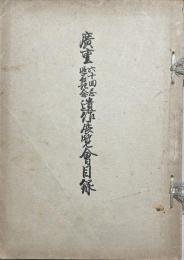 廣重六十回忌追善記念遺作展覽會目録